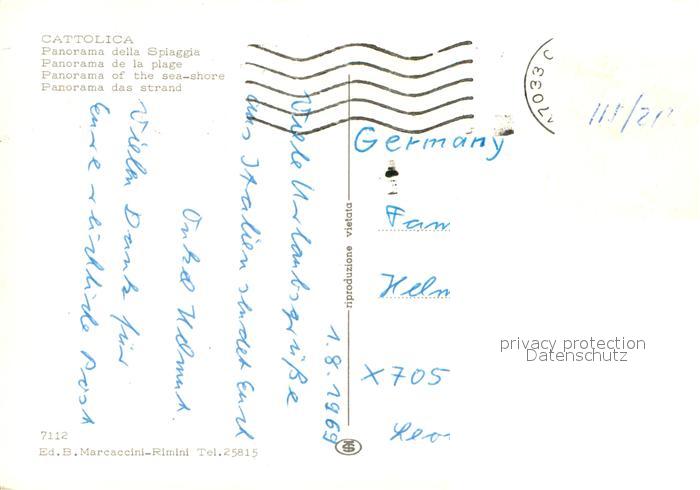 CATTOLICA
Panorama della Spiaggia
Panorama de la plage
Panorama of the sea-shore
Panorama das strand
1.8.1969
Viele Urlaubsgrüße
aus Italien sendet Euch
Onkel Helmut.
Vielen Dank für
Eure Post
riproduzione vietata
Germany
Fam
Helm
X705
Leo
47033
privacy protection
Datenschutz
7112
Ed.B.Marcaccini-Rimini Tel.25815